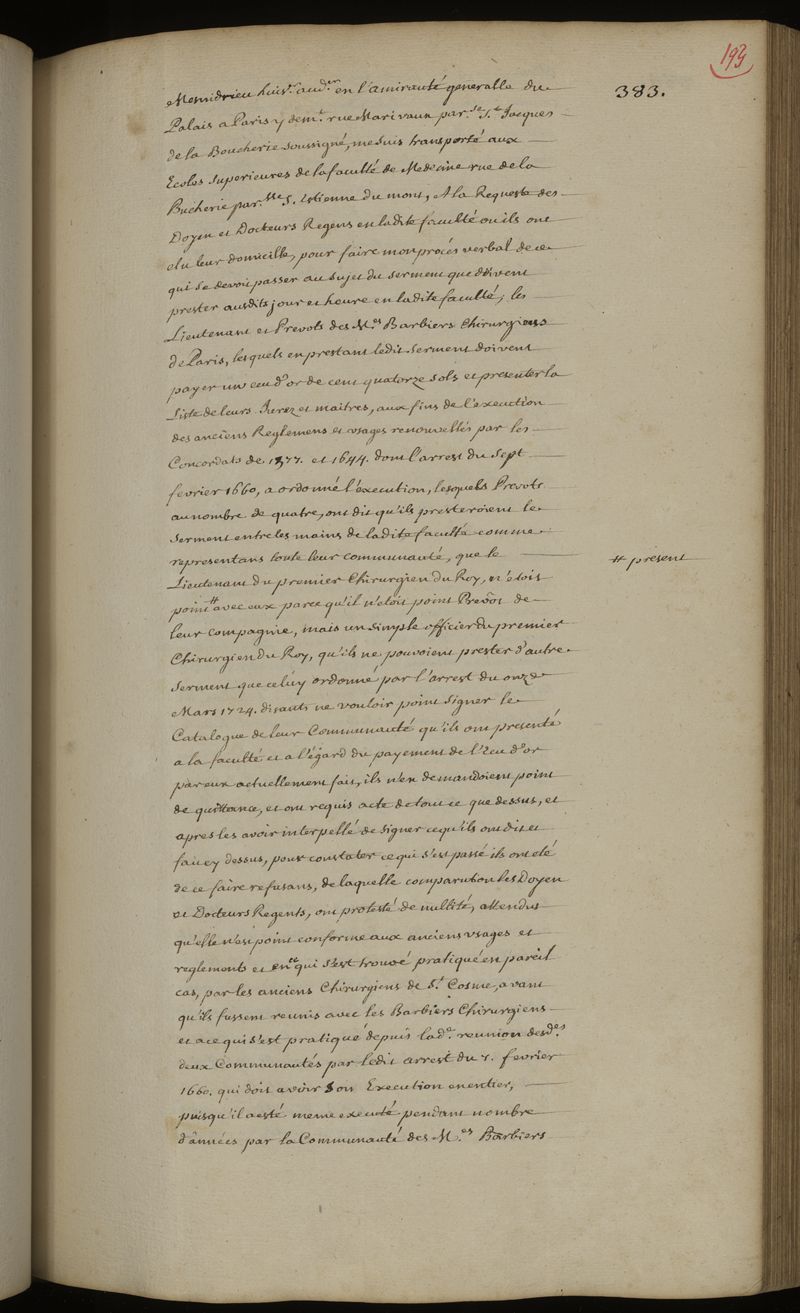 193
383.
huis.r aud.er en l'amirauté generalle du
Palais a Paris y dem.t rue Marivaux par.se S.t Jacques
de la Boucherie soussigné, me suis transporté aux
Ecoles Superieures de la faculté de Medecine rue de la
Bucherie par.sse S. Estienne du mont, A la Requeste des
Doyen et Docteurs Regens en ladite faculté ou ils ont
elu leur domicille, pour faire mon procés verbal de ce
qui se devoit passer au sujet du serment que doivent
prester ausdits jour et heure en ladite faculté, les
Lieutenant et Prevots des M.es Barbiers Chirurgiens
de Paris, lesquels en prestant ledit Serment doivent
payer un ecu d'or de cent quatorze sols et presenter la
Liste de leurs Jurez et maitres, aux fins de l'execution
des anciens Reglemens et usages renouvellés par les
Concordats de 1577. et 1644. dont l'arrest du Sept
fevrier 1660, a ordonné l'execution, lesquels Prevots
au nombre de quatre, ont dit qu'ils presteroient le
Serment entre les mains de ladite faculté comme
representans toute leur communauté, que le
Lieutenant du premier Chirurgien du Roy, n'étoit
point # avec eux parce qu'il n'etoit point Prevôt de
# présent
leur compagnie, mais un simple officier du premier
Chirurgien du Roy, qu'ils ne pouvoient prester d'autre
Serment que celuy ordonné par l'arrest du onze
Mars 1724. disants ne vouloir point signer le
Catalogue de leur Communauté qu'ils ont presenté
a la faculté et a l'égard du payement de l'Ecu d'or
par eux actuellement fait, ils n'en demandoient point
de quittance, et ont requis acte de tout ce que dessus, et
apres les avoir interpellé de signer ce qu'ils ont dit et
fait cy dessus, pour constater ce qui s'est passé ils ont eté
de ce faire refusans, de laquelle comparution les Doyen
et Docteurs Regents, ont protesté de nullité, attendu
qu'elle n'est point conforme aux anciens usages et
reglements et qui s'est trouvé pratiqué en pareil
cas, par les anciens Chirurgiens de S.t Cosme, avant
qu'ils fussent reunis avec les Barbiers Chirurgiens
et a ce qui s'est pratiqué depuis lad.e reunion desd.es
deux Communautés par ledit arrest du 7. fevrier
1660. qui doit avoir Son Execution en entier,
puisqu'il a esté meme executé pendant nombre
d'années par la Communauté des M.es Barbiers